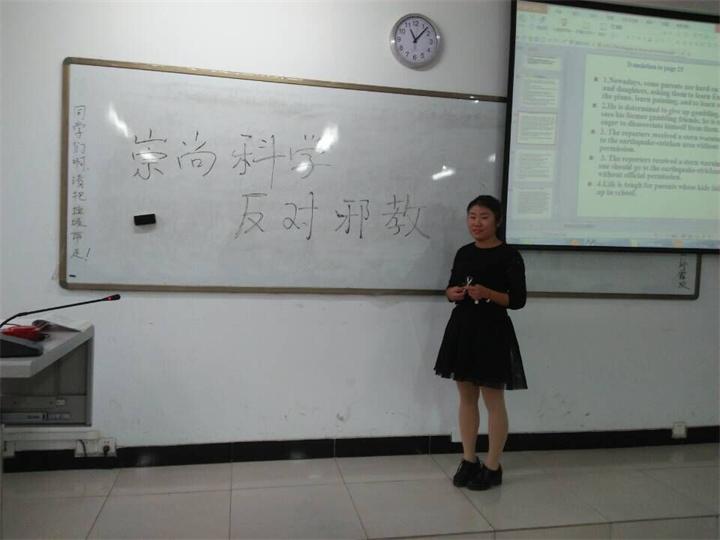 同学们啊,请把垃圾带走!
崇尚科学
反对邪教
Translation to page 25
1.Nowadays, some parents are hard on
and daughters, asking them to learn
the piano, learn painting, and to learn
2.He is determined to give up gambling
sees his former gambling friends. So
eager to disassociate himself from them
3. The reporters received a stern warning
to the earthquake-stricken area without
permission.
3. The reporters received a stern warning
one should go to the earthquake-stricken
without official permission.
4.Life is tough for parents whose kids
up in school.